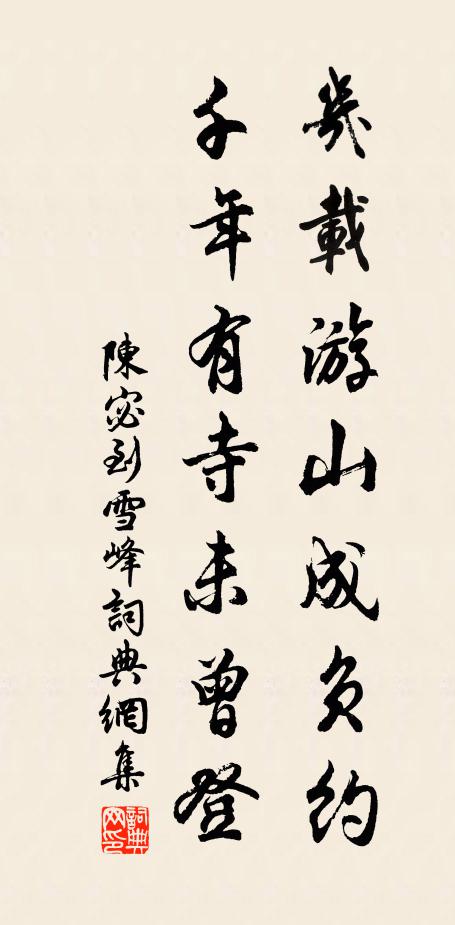 幾載游山成負約
千年有寺未曾登
陳宓到雪峰詞典網集
詞典網印